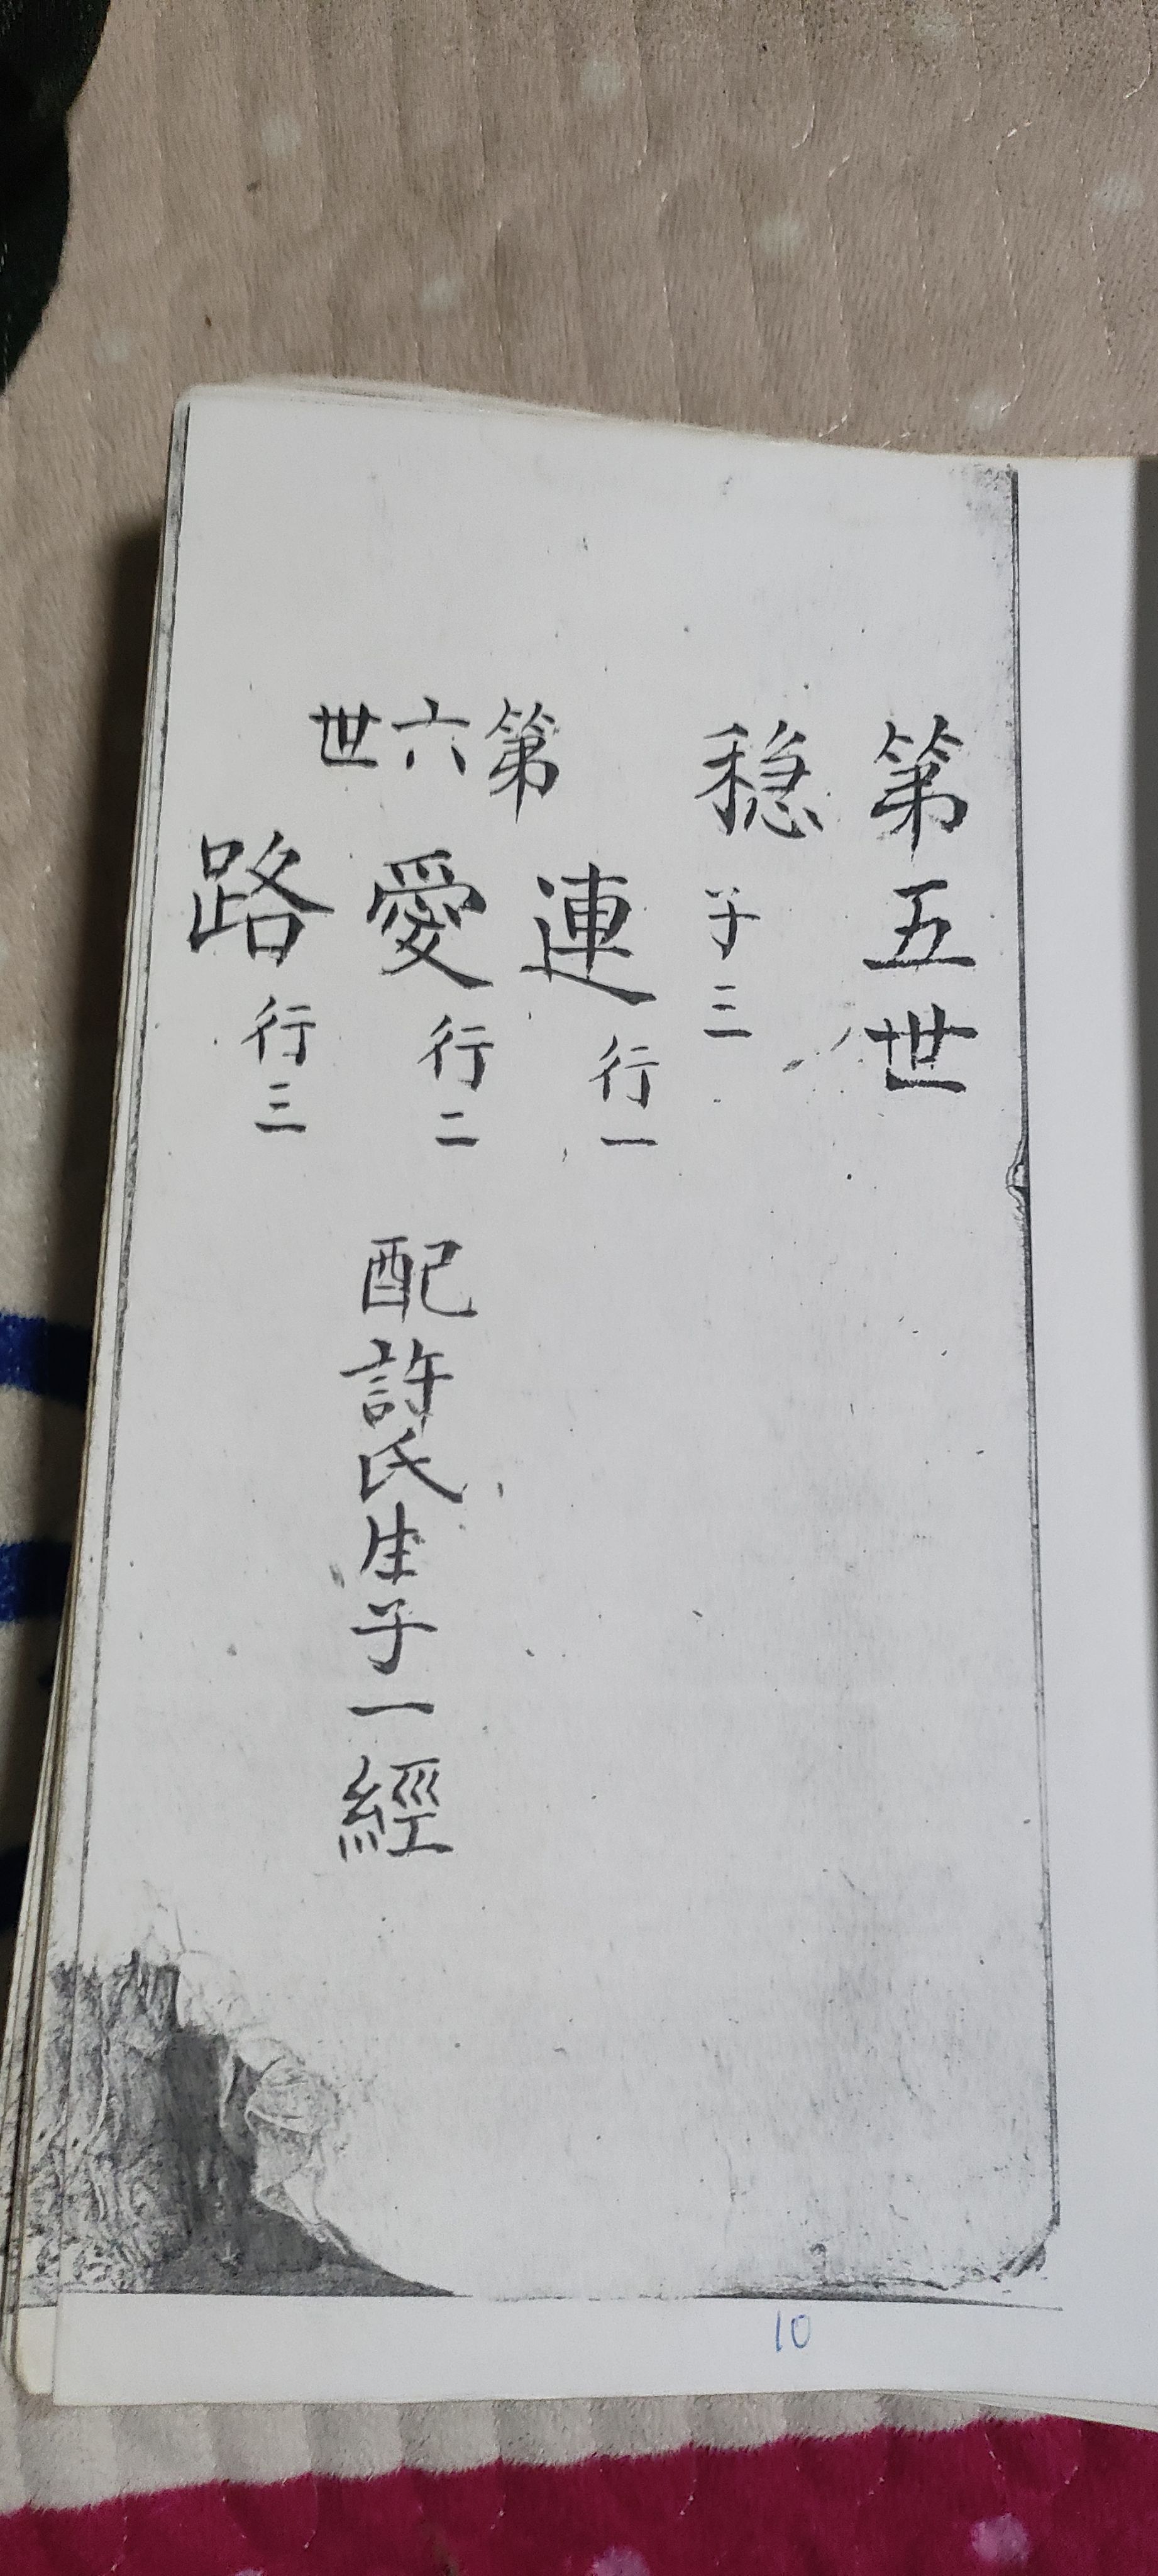 第五世
穏 子三
第六世
連 行一
愛 行二 配許氏生子一經
路 行三
10